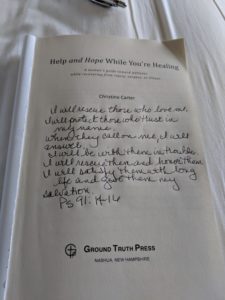 Help and Hope While You're Healing
A woman's guide toward wellness
while recovering from injury, surgery, or illness
Christine Carter
I will rescue those who love me.
I will protect those who trust in
my name.
When they call on me, I will
answer.
I will be with them in trouble.
I will rescue them and honor them.
I will satisfy them with long
life and give them my
salvation.
Ps 91:14-16
GROUND TRUTH PRESS
NASHUA, NEW HAMPSHIRE